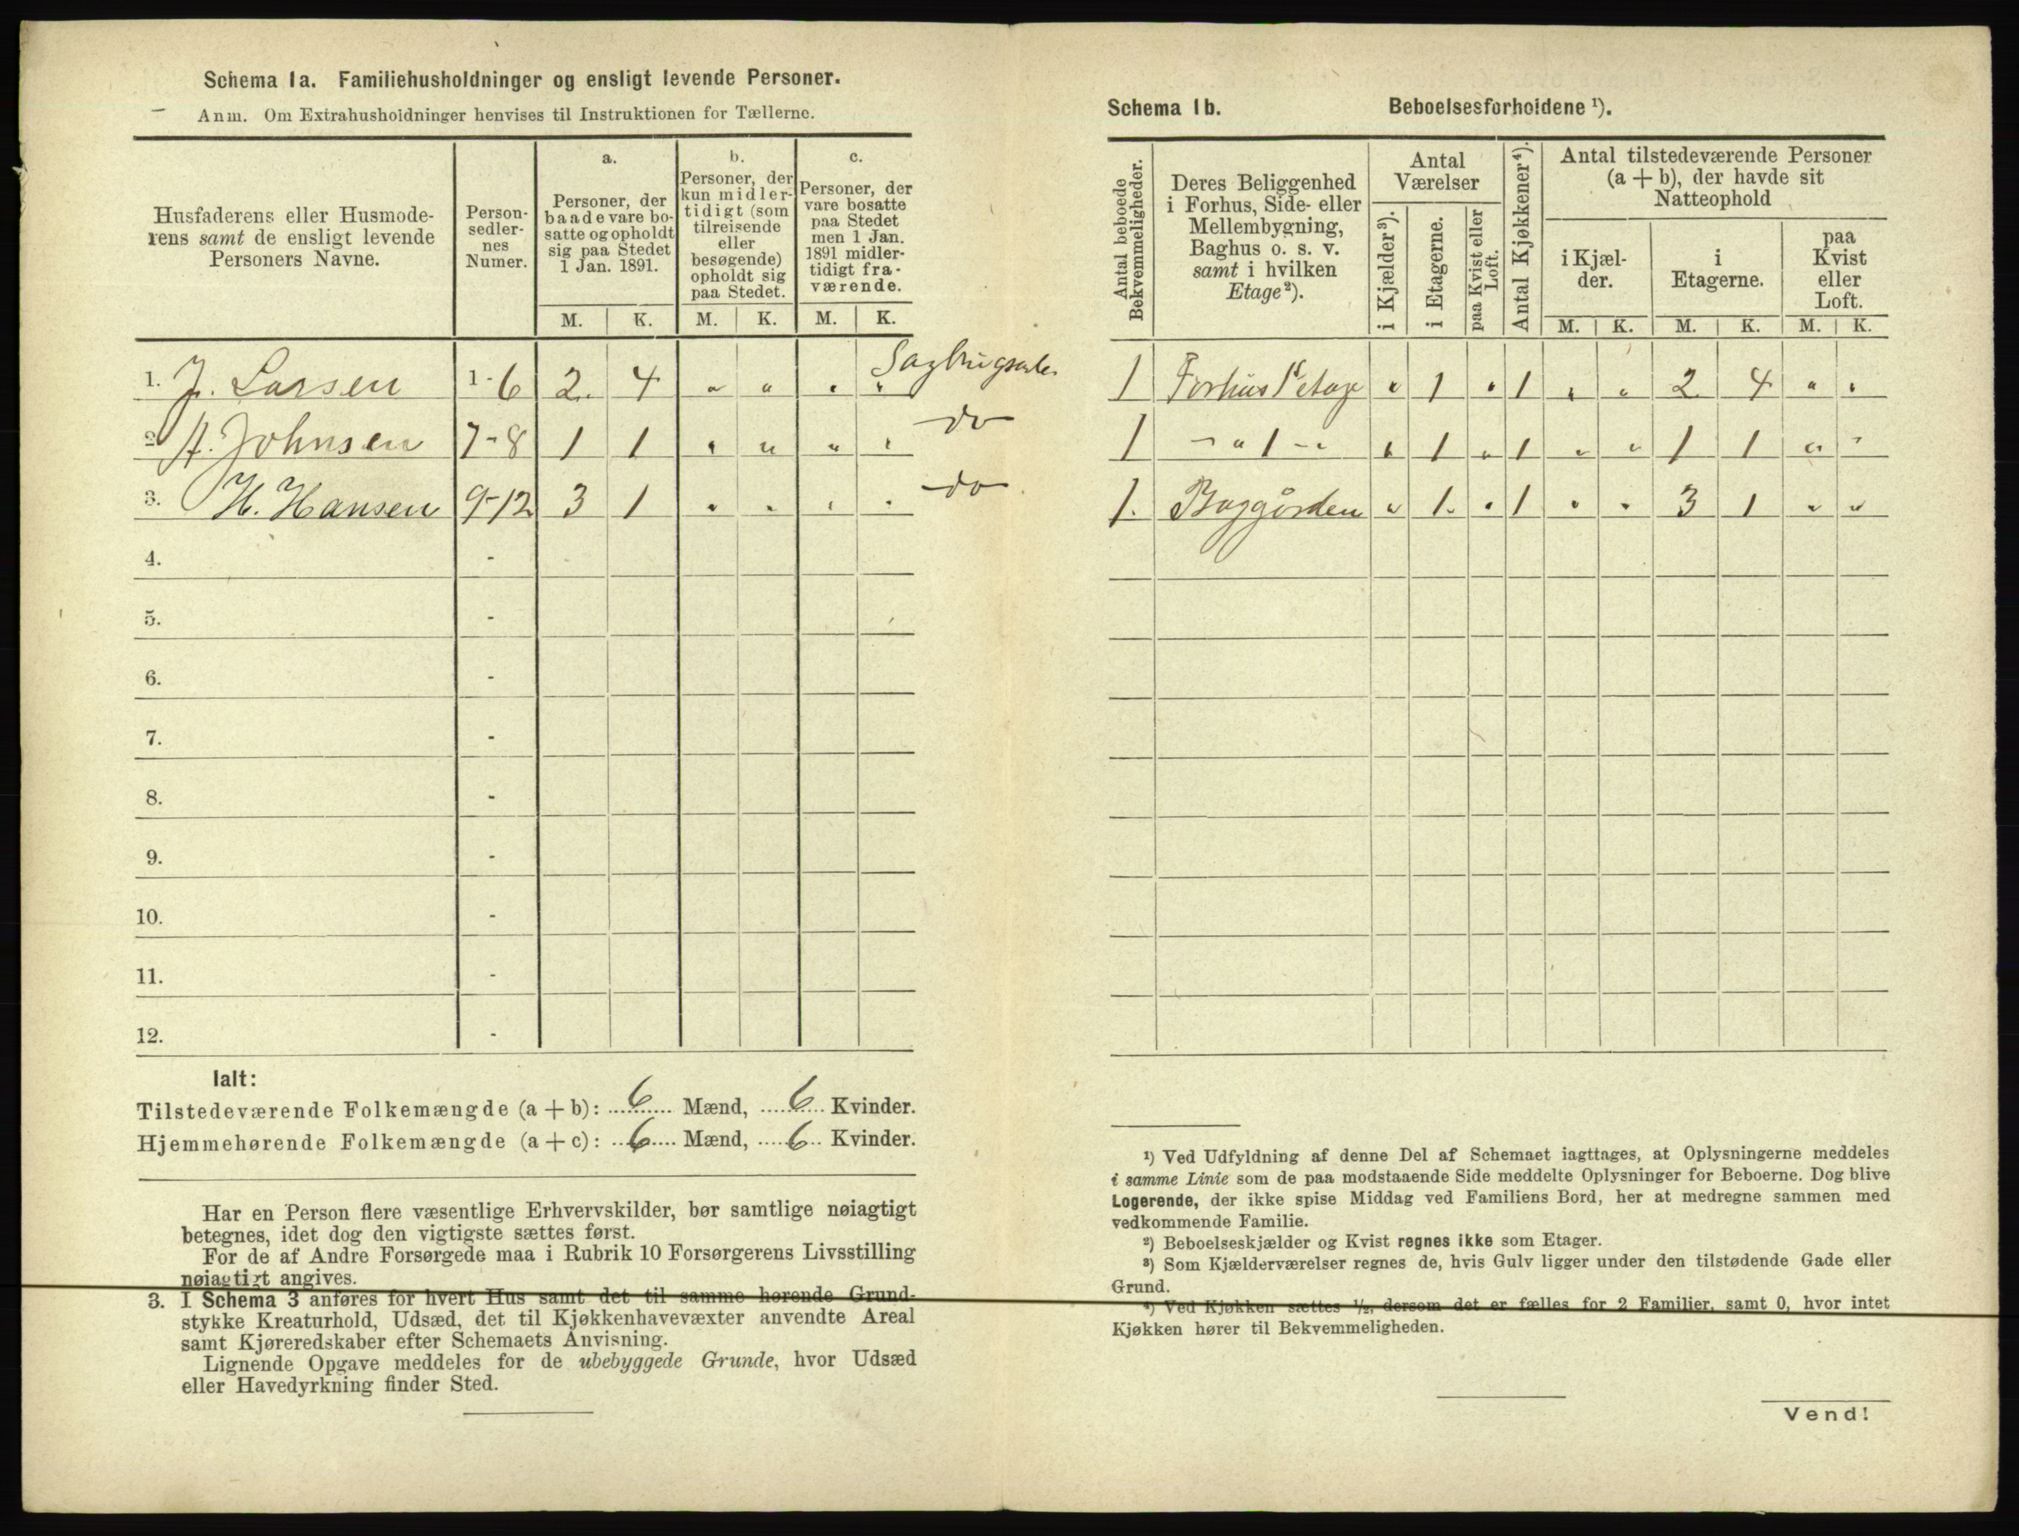 Schema 1a. Familiehusholdninger og ensligt levende Personer.
Anm. Om Extrahusholdninger henvises til Instruktionen for Tællerne.
Husfaderens eller Husmode-
rens samt de ensligt levende
Personers Navne.
Person-
sedler-
nes
Numer.
a.
Personer, der
baade vare bo-
satte og opholdt
sig paa Stedet
1 Jan. 1891.
b.
Personer, der
kun midler-
tidigt (som
tilreisende
eller
besøgende)
opholdt sig
paa Stedet.
c.
Personer, der
vare bosatte
paa Stedet
men 1 Jan.
1891 midler-
tidigt fra-
værende.
M. K. M. K. M. K.
1. J. Larsen 1-6 2. 4 " " " "
2 A. Johnsen 7-8 1 1 " " " " do
3. H. Hansen 9-12 3 1 " " " " do
4. -
5. -
6. -
7. -
8. -
9. -
10. -
11. -
12. -
Ialt:
Tilstedeværende Folkemængde (a + b): 6 Mænd, 6 Kvinder.
Hjemmehørende Folkemængde (a + c): 6 Mænd, 6 Kvinder.
Har en Person flere væsentlige Erhvervskilder, bør samtlige nøiagtigt
betegnes, idet dog den vigtigste sættes først.
For de af Andre Forsørgede maa i Rubrik 10 Forsørgerens Livsstilling
nøiagtigt angives.
3. I Schema 3 anføres for hvert Hus samt det til samme hørende Grund-
stykke Kreaturhold, Udsæd, det til Kjøkkenhavevæxter anvendte Areal
samt Kjøreredskaber efter Schemaets Anvisning.
Lignende Opgave meddeles for de ubebyggede Grunde, hvor Udsæd
eller Havedyrkning finder Sted.
Schema 1b. Beboelsesforholdene ¹).
Antal beboede
Bekvemmeligheder.
Deres Beliggenhed
i Forhus, Side- eller
Mellembygning,
Baghus o. s. v.
samt i hvilken
Etage²).
Antal
Værelser
i Kjælder³).
i Etagerne.
paa Kvist eller
Loft.
Antal Kjøkkener⁴).
Antal tilstedeværende Personer
(a + b), der havde sit
Natteophold
i Kjæl-
der.
i
Etagerne.
paa
Kvist
eller
Loft.
M. K. M. K. M. K.
1 Forhus 1st etage " 1 " 1 " " 2 4 " "
1 - " 1 - " " 1 " 1 " " 1 1 " "
1. Baggården " 1. " 1 " " 3 1 " "
¹) Ved Udfyldning af denne Del af Schemaet iagttages, at Oplysningerne meddeles
i samme Linie som de paa modstaaende Side meddelte Oplysninger for Beboerne. Dog blive
Logerende, der ikke spise Middag ved Familiens Bord, her at medregne sammen med
vedkommende Familie.
²) Beboelseskjælder og Kvist regnes ikke som Etager.
³) Som Kjælderværelser regnes de, hvis Gulv ligger under den tilstødende Gade eller
Grund.
⁴) Ved Kjøkken sættes ½, dersom det er fælles for 2 Familier, samt 0, hvor intet
Kjøkken hører til Bekvemmeligheden.
Vend!